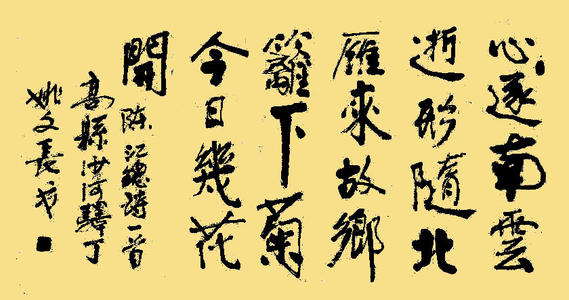 心逐南雲
逝形隨北
雁來故鄉
籬下菊
今日幾花
開 陈江總詩一首
高縣沙河驛丁
姚文長